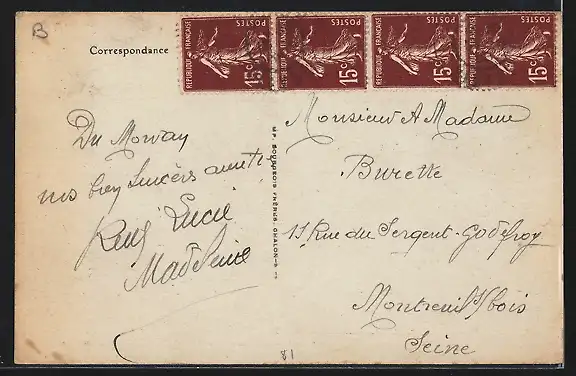 B
Correspondance
RÉPUBLIQUE FRANÇAISE POSTES 15c
RÉPUBLIQUE FRANÇAISE POSTES 15c
RÉPUBLIQUE FRANÇAISE POSTES 15c
RÉPUBLIQUE FRANÇAISE POSTES 15c
Du Morvan
nos bons sincères
Lucie
Madeleine
IMP. BOURGEOIS FRÈRES, CHALON-S-S
Monsieur & Madame
Burette
Rue du Sergent-Godefroy
Montreuil s/bois
Seine
81